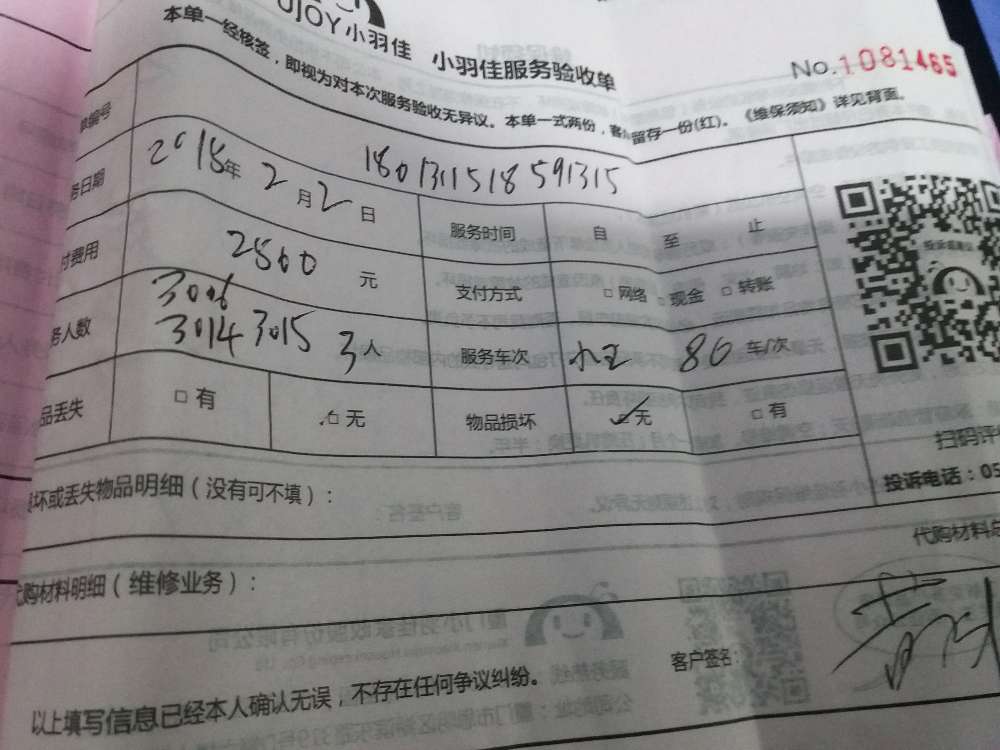 UJOY小羽佳 小羽佳服务验收单
No.1081465
本单一经核签，即视为对本次服务验收无异议。本单一式两份，客户留存一份(红)。《维保须知》详见背面。
单编号 180131151859 1315
务日期 2018年2月2日 服务时间 自 至 止
付费用 2500元 支付方式 □网络 □现金 □转账
务人数 3006 3014 3015 3人 服务车次 80车/次
品丢失 □有 □无 物品损坏 □无 □有
扫码评
投诉电话：05
损坏或丢失物品明细（没有可不填）：
代购材料明细（维修业务）： 代购材料总
以上填写信息已经本人确认无误，不存在任何争议纠纷。 客户签名：